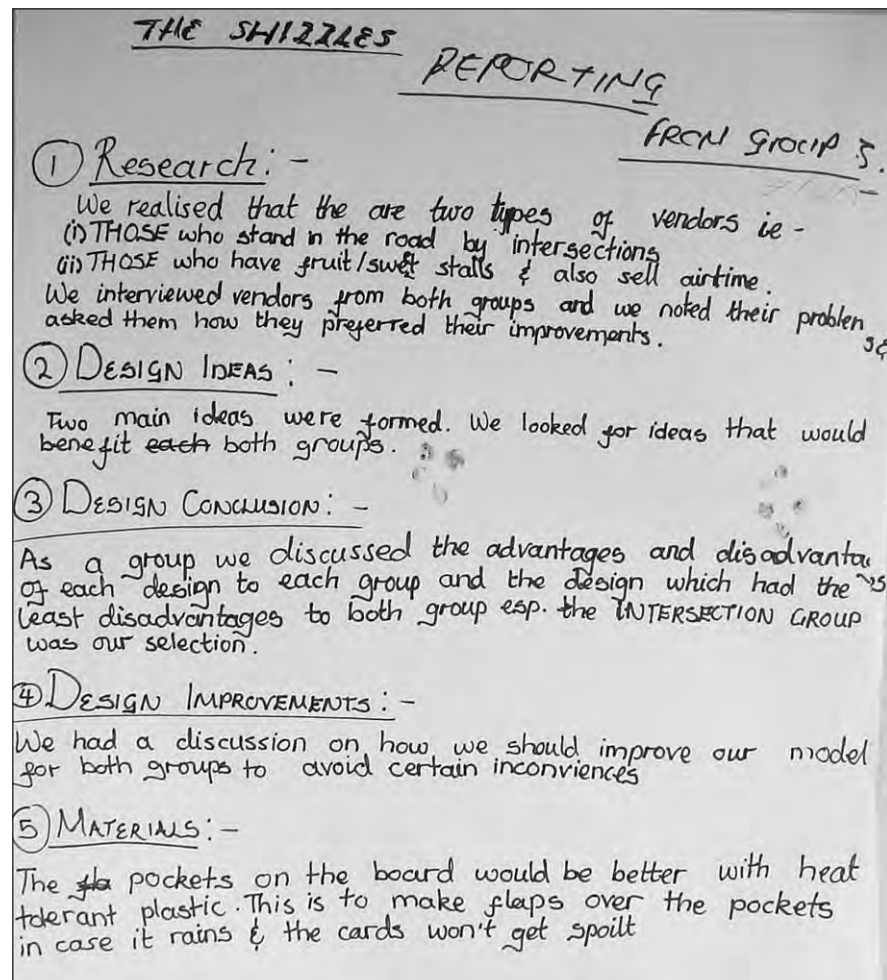 THE SHIZZLES
REPORTING
FROM GROUP 3.
① Research: -
We realised that the are two types of vendors ie -
(i) THOSE who stand in the road by intersections
(ii) THOSE who have fruit/sweet stalls & also sell airtime.
We interviewed vendors from both groups and we noted their problem
s &
asked them how they preferred their improvements.
② DESIGN IDEAS: -
Two main ideas were formed. We looked for ideas that would
benefit each both groups.
③ DESIGN CONCLUSION: -
As a group we discussed the advantages and disadvanta
ges
of each design to each group and the design which had the
least disadvantages to both group esp. the INTERSECTION GROUP
was our selection.
④ DESIGN IMPROVEMENTS: -
We had a discussion on how we should improve our model
for both groups to avoid certain inconviences
⑤ MATERIALS: -
The pockets on the board would be better with heat
tolerant plastic. This is to make flaps over the pockets
in case it rains & the cards won't get spoilt